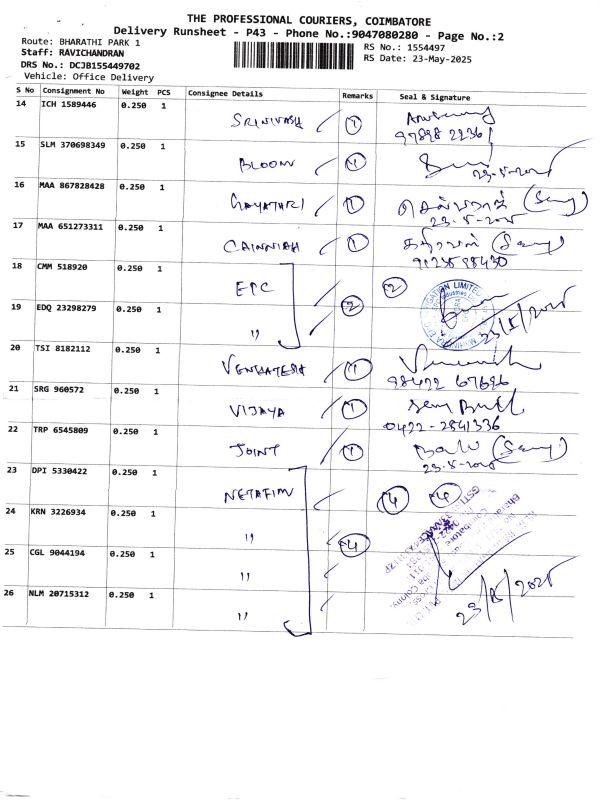 THE PROFESSIONAL COURIERS, COIMBATORE
Delivery Runsheet - P43 - Phone No.:9047080280 - Page No.:2
Route: BHARATHI PARK 1
RS No.: 1554497
Staff: RAVICHANDRAN
RS Date: 23-May-2025
DRS No.: DCJB155449702
Vehicle: Office Delivery
S No Consignment No Weight PCS Consignee Details Remarks Seal & Signature
14 ICH 1589446 0.250 1 SRINIVASH 1
15 SLM 370698349 0.250 1 BLOOM 1
23.5.2025
16 MAA 867828428 0.250 1 GAYATHRI 1 செல்வராஜ்
23.5.2025
17 MAA 651273311 0.250 1 1 கதிரவன்
18 CMM 518920 0.250 1 EPC 2
19 EDQ 23298279 0.250 1 " 2
23/5/2025
20 TSI 8182112 0.250 1 VENKATESH 1
98422 67696
21 SRG 960572 0.250 1 VIJAYA 1
0422-2541336
22 TRP 6545809 0.250 1 JOINT 1 Balu
23.5.2025
23 DPI 5330422 0.250 1 NETAFIM 4 4
24 KRN 3226934 0.250 1 " 4
25 CGL 9044194 0.250 1 "
26 NLM 20715312 0.250 1 "
23/5/2025